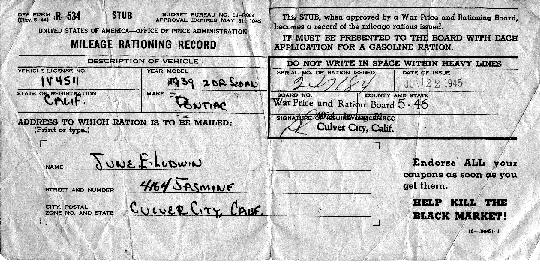 OPA FORM R-534 STUB
BUDGET BUREAU NO.
APPROVAL EXPIRES MAY 31, 1945
UNITED STATES OF AMERICA—OFFICE OF PRICE ADMINISTRATION
MILEAGE RATIONING RECORD
DESCRIPTION OF VEHICLE
VEHICLE LICENSE NO. YEAR MODEL
1V4511 1939 2 DR SEDAN
STATE OF REGISTRATION MAKE
CALIF. PONTIAC
ADDRESS TO WHICH RATION IS TO BE MAILED:
(Print or type.)
NAME JUNE E. LUDWIN
STREET AND NUMBER 4164 JASMINE
CITY, POSTAL ZONE NO. AND STATE CULVER CITY CALIF.
This STUB, when approved by a War Price and Rationing Board, becomes a record of the mileage rations issued.
IT MUST BE PRESENTED TO THE BOARD WITH EACH APPLICATION FOR A GASOLINE RATION.
DO NOT WRITE IN SPACE WITHIN HEAVY LINES
SERIAL NO. OF RATION ISSUED DATE OF ISSUE
22 1945
BOARD NO. COUNTY AND STATE
War Price and Ration Board 5-46
SIGNATURE
Culver City, Calif.
Endorse ALL your
coupons as soon as you
get them.
HELP KILL THE
BLACK MARKET!